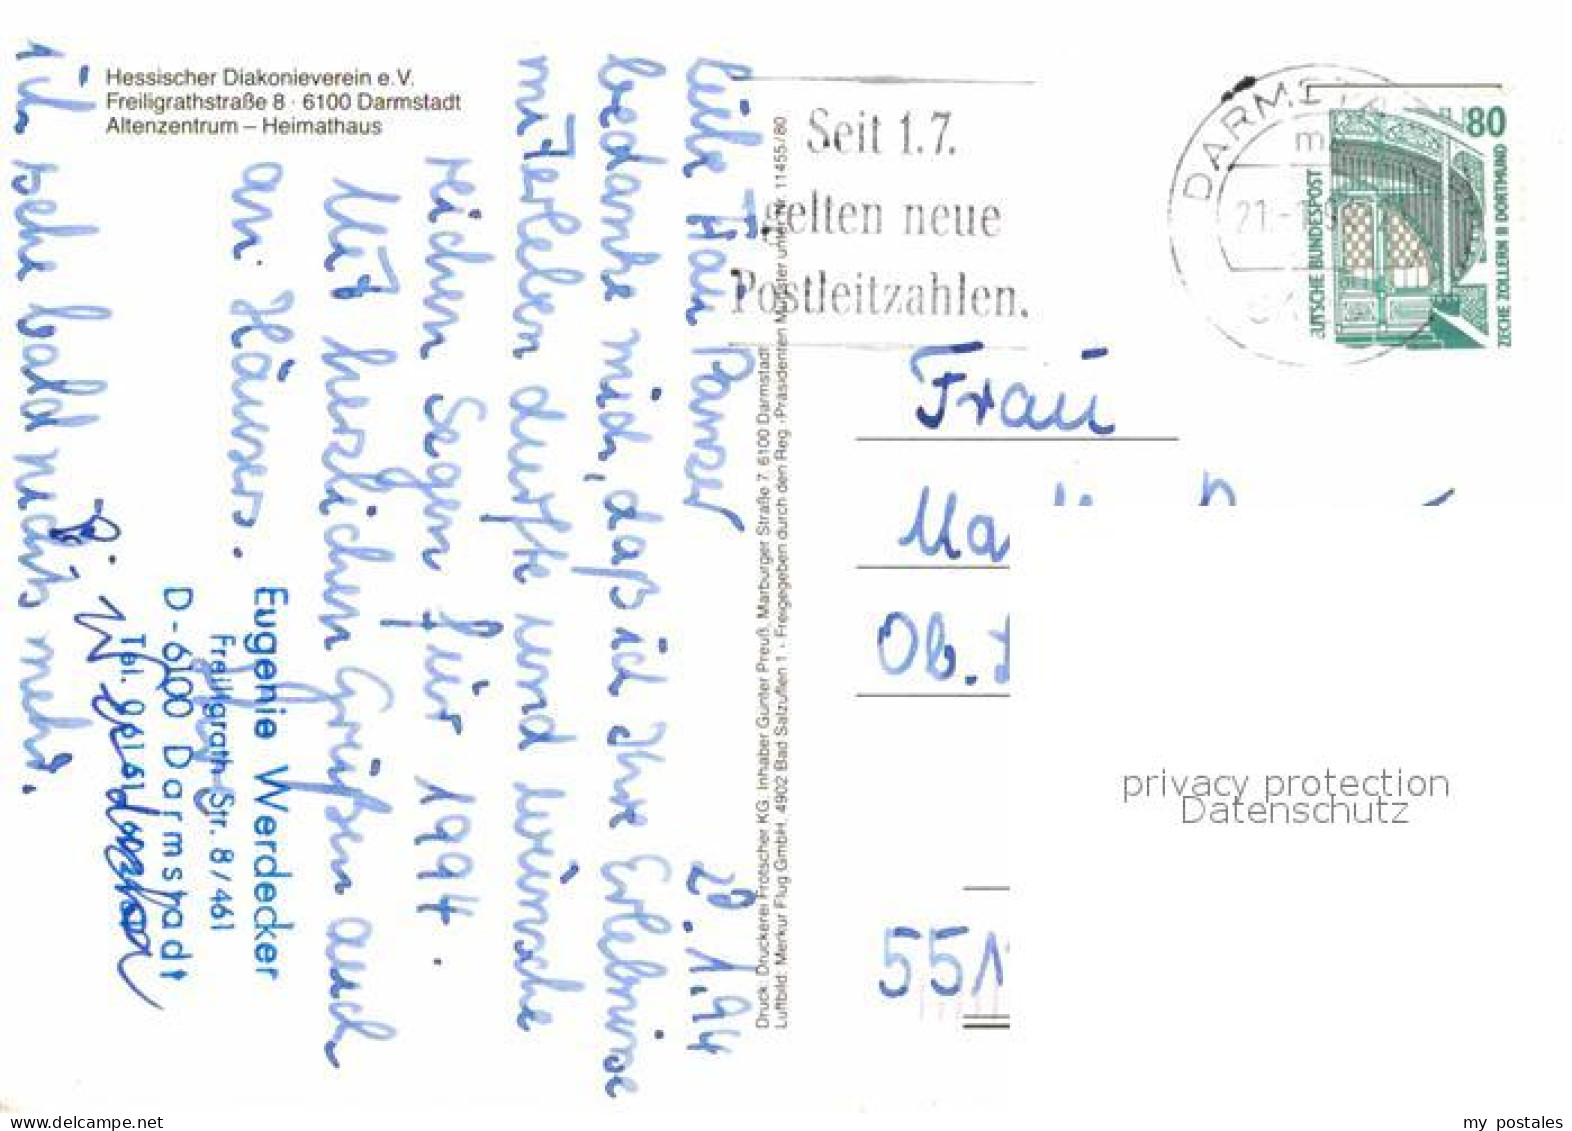 Hessischer Diakonieverein e.V.
Freiligrathstraße 8 · 6100 Darmstadt
Altenzentrum – Heimathaus
20.1.94
Liebe Frau Panzer
bedanke mich, daß ich Ihre Erlebnisse
miterleben durfte und wünsche
reichen Segen für 1994.
Mit herzlichen Grüßen auch
an Häusers.
Eugenie Werdecker
Freiligrath-Str. 8/461
D-6100 Darmstadt
Tel.
ich sehe bald nichts mehr.
Druck: Druckerei Frotscher KG. Inhaber Günter Preuß, Marburger Straße 7, 6100 Darmstadt
Luftbild: Merkur Flug GmbH, 4902 Bad Salzuflen 1 · Freigegeben durch den Reg.-Präsidenten Münster unter Nr. 11455/80
Seit 1.7.
gelten neue
Postleitzahlen.
DARMSTADT
21.-1
80
DEUTSCHE BUNDESPOST
ZECHE ZOLLERN II DORTMUND
Frau
Ma
Ob.
551
privacy protection
Datenschutz
www.delcampe.net
my_postales